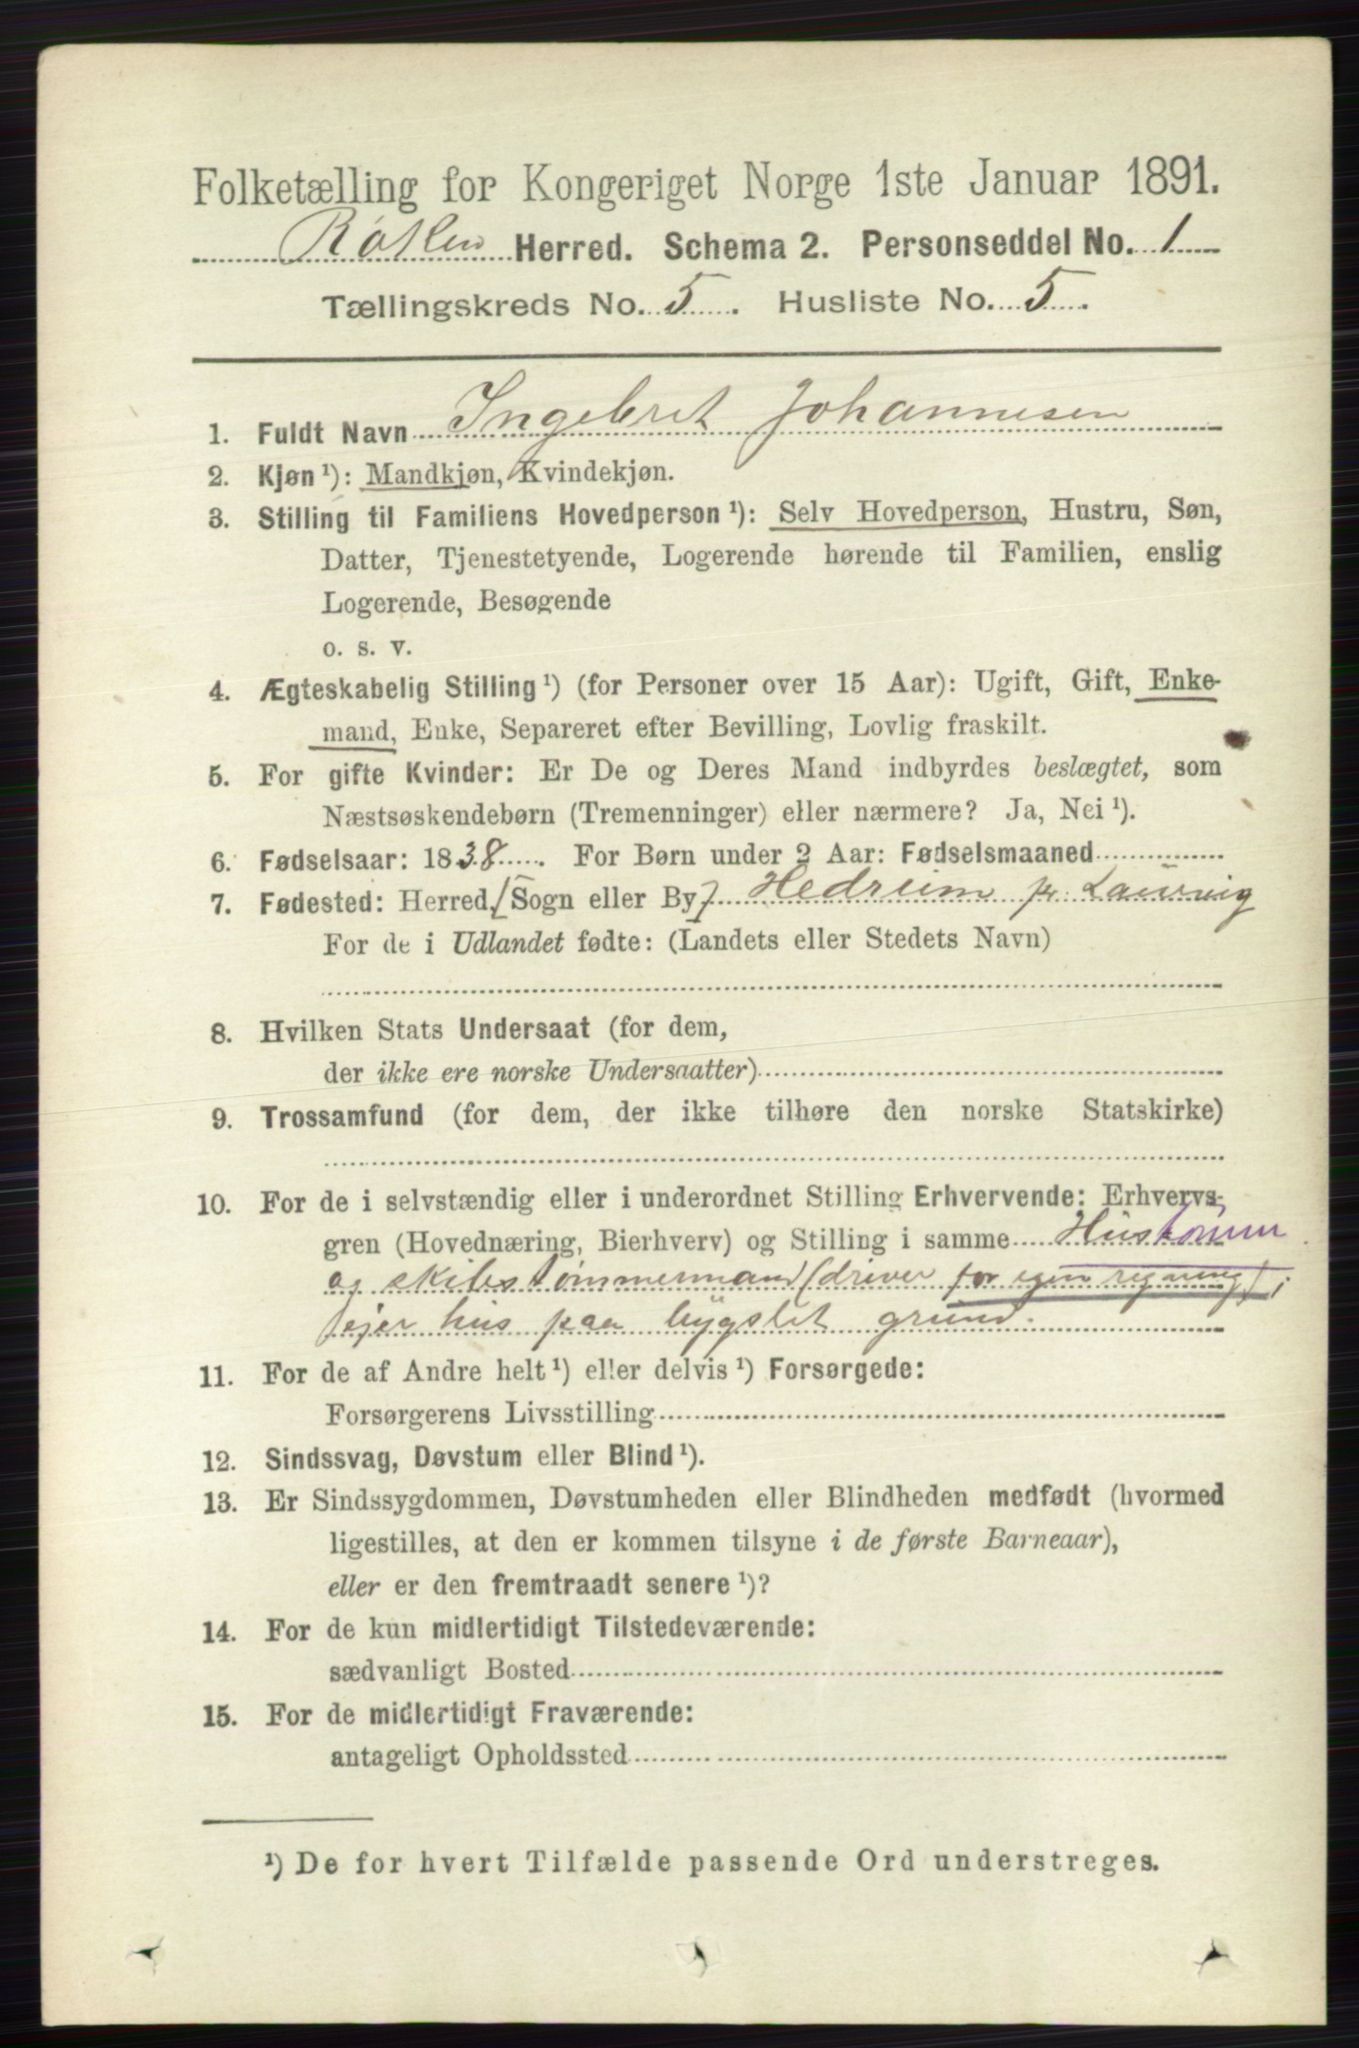 Folketælling for Kongeriget Norge 1ste Januar 1891.
Røken Herred. Schema 2. Personseddel No. 1
Tællingskreds No. 5. Husliste No. 5.
1. Fuldt Navn Ingebret Johannesen
2. Kjøn ¹): Mandkjøn, Kvindekjøn.
3. Stilling til Familiens Hovedperson ¹): Selv Hovedperson, Hustru, Søn,
Datter, Tjenestetyende, Logerende hørende til Familien, enslig
Logerende, Besøgende
o. s. v.
4. Ægteskabelig Stilling ¹) (for Personer over 15 Aar): Ugift, Gift, Enke-
mand, Enke, Separeret efter Bevilling, Lovlig fraskilt.
5. For gifte Kvinder: Er De og Deres Mand indbyrdes beslægtet, som
Næstsøskendebørn (Tremenninger) eller nærmere? Ja, Nei ¹).
6. Fødselsaar: 1838. For Børn under 2 Aar: Fødselsmaaned
7. Fødested: Herred, [Sogn eller By] Hedreim pr Laurvig
For de i Udlandet fødte: (Landets eller Stedets Navn)
8. Hvilken Stats Undersaat (for dem,
der ikke ere norske Undersaatter)
9. Trossamfund (for dem, der ikke tilhøre den norske Statskirke)
10. For de i selvstændig eller i underordnet Stilling Erhvervende: Erhvervs-
gren (Hovednæring, Bierhverv) og Stilling i samme Hustømm
og skibstømmermand (driver for egen regning);
ejer hus paa bygslet grund.
11. For de af Andre helt ¹) eller delvis ¹) Forsørgede:
Forsørgerens Livsstilling
12. Sindssvag, Døvstum eller Blind ¹).
13. Er Sindssygdommen, Døvstumheden eller Blindheden medfødt (hvormed
ligestilles, at den er kommen tilsyne i de første Barneaar),
eller er den fremtraadt senere ¹)?
14. For de kun midlertidigt Tilstedeværende:
sædvanligt Bosted
15. For de midlertidigt Fraværende:
antageligt Opholdssted
¹) De for hvert Tilfælde passende Ord understreges.